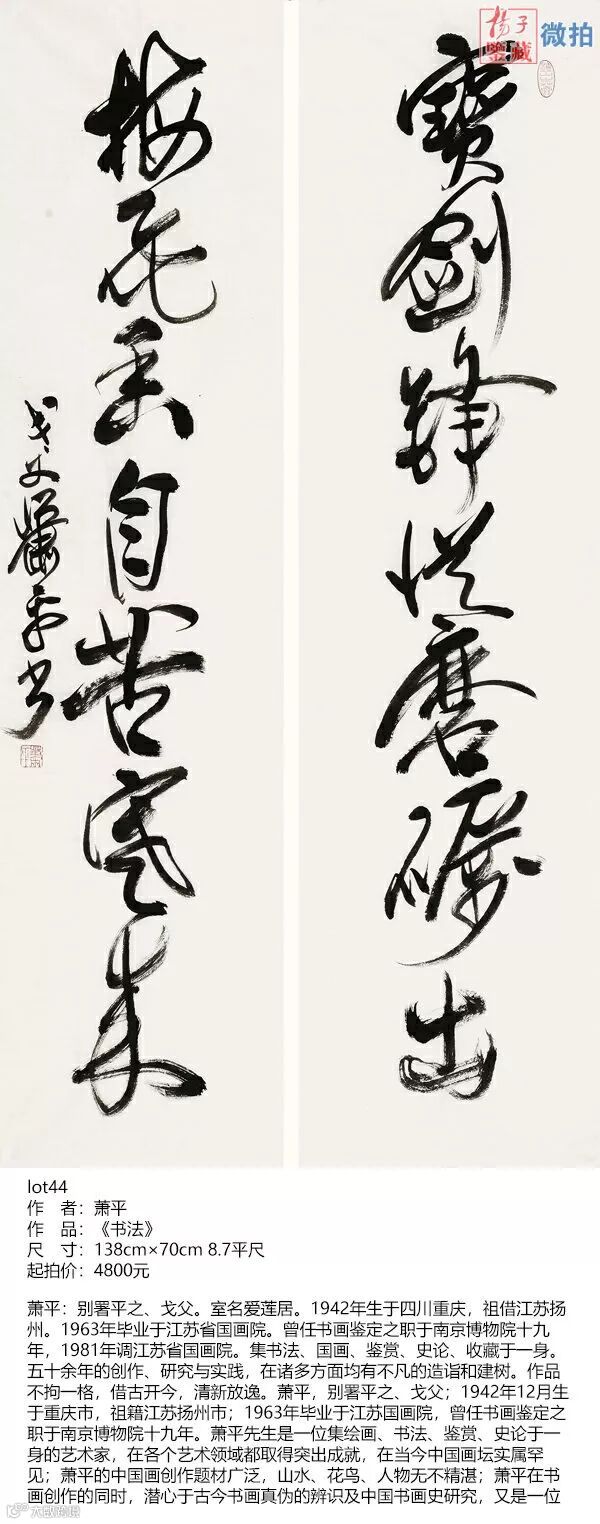 楊子
鑒藏
微拍
寶劍鋒從磨礪出
梅花香自苦寒来
戈父蕭平书
lot44
作 者：萧平
作 品：《书法》
尺 寸：138cm×70cm 8.7平尺
起拍价：4800元
萧平：别署平之、戈父。室名爱莲居。1942年生于四川重庆，祖借江苏扬
州。1963年毕业于江苏省国画院。曾任书画鉴定之职于南京博物院十九
年，1981年调江苏省国画院。集书法、国画、鉴赏、史论、收藏于一身。
五十余年的创作、研究与实践，在诸多方面均有不凡的造诣和建树。作品
不拘一格，借古开今，清新放逸。萧平，别署平之、戈父；1942年12月生
于重庆市，祖籍江苏扬州市；1963年毕业于江苏国画院，曾任书画鉴定之
职于南京博物院十九年。萧平先生是一位集绘画、书法、鉴赏、史论于一
身的艺术家，在各个艺术领域都取得突出成就，在当今中国画坛实属罕
见；萧平的中国画创作题材广泛，山水、花鸟、人物无不精湛；萧平在书
画创作的同时，潜心于古今书画真伪的辨识及中国书画史研究，又是一位
大数跨境